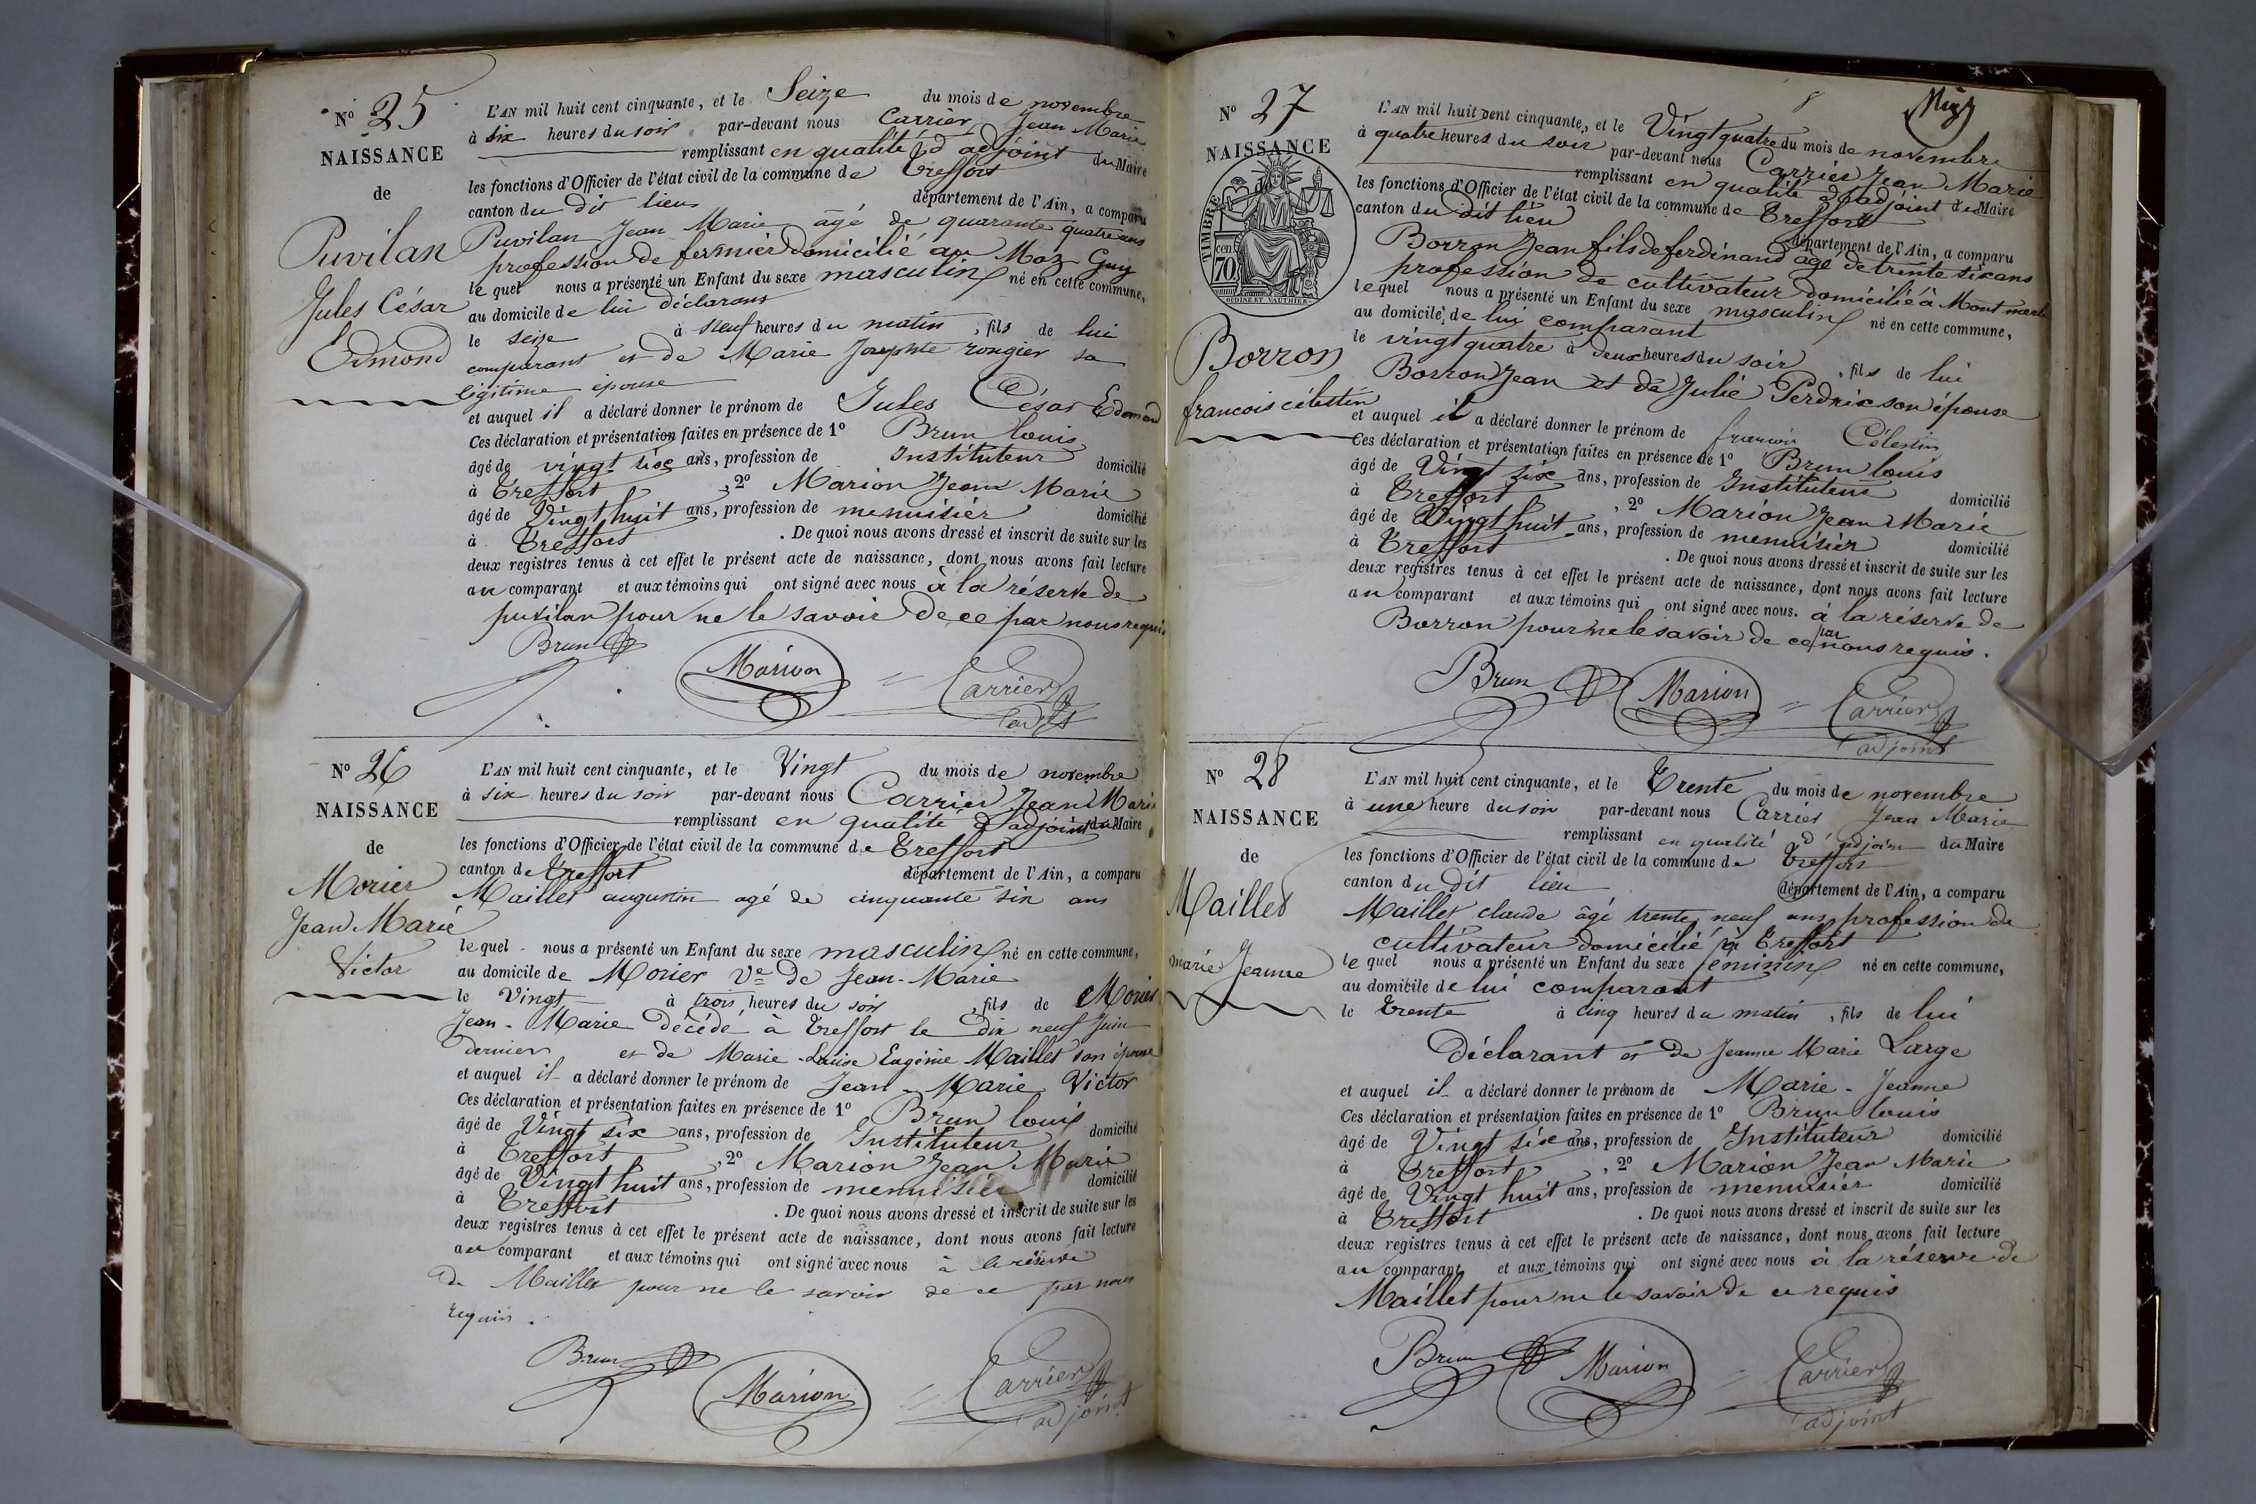 N° 25
NAISSANCE
de
Puvilan
Jules César
Edmond
L'AN mil huit cent cinquante, et le Seize du mois de novembre
à six heures du soir par-devant nous Carrier Jean Marie
remplissant en qualité d'adjoint du Maire
les fonctions d'Officier de l'état civil de la commune de Treffort
canton du dit lieu département de l'Ain, a comparu
Puvilan Jean Marie âgé de quarante quatre ans
profession de fermier domicilié au Maz Guy
lequel nous a présenté un Enfant du sexe masculin né en cette commune,
au domicile de lui déclarant
le seize à neuf heures du matin, fils de lui
comparant et de Marie Josephte rongier sa
légitime épouse
et auquel il a déclaré donner le prénom de Jules César Edmond
Ces déclaration et présentation faites en présence de 1° Brun louis
âgé de vingt six ans, profession de Instituteur domicilié
à Treffort, 2° Marion Jean Marie
âgé de Vingt huit ans, profession de menuisier domicilié
à Treffort. De quoi nous avons dressé et inscrit de suite sur les
deux registres tenus à cet effet le présent acte de naissance, dont nous avons fait lecture
au comparant et aux témoins qui ont signé avec nous à la réserve de
puvilan pour ne le savoir de ce par nous requis
Brun Marion Carrier
adjt
N° 26
NAISSANCE
de
Morier
Jean Marie
Victor
L'AN mil huit cent cinquante, et le Vingt du mois de novembre
à six heures du soir par-devant nous Carrier Jean Marie
remplissant en qualité d'adjoint du Maire
les fonctions d'Officier de l'état civil de la commune de Treffort
canton de Treffort département de l'Ain, a comparu
Maillet augustin agé de cinquante six ans
lequel nous a présenté un Enfant du sexe masculin né en cette commune,
au domicile de Morier Ve de Jean-Marie
le Vingt à trois heures du soir, fils de Morier
Jean-Marie décédé à Treffort le dix neuf Juin
dernier et de Marie-Louise Eugénie Maillet son épouse
et auquel il a déclaré donner le prénom de Jean-Marie Victor
Ces déclaration et présentation faites en présence de 1° Brun louis
âgé de Vingt six ans, profession de Instituteur domicilié
à Treffort, 2° Marion Jean Marie
âgé de Vingt huit ans, profession de menuisier domicilié
à Treffort. De quoi nous avons dressé et inscrit de suite sur les
deux registres tenus à cet effet le présent acte de naissance, dont nous avons fait lecture
au comparant et aux témoins qui ont signé avec nous à la réserve
de Maillet pour ne le savoir de ce par nous
requis.
Brun Marion Carrier
adjoint
8
N° 27
NAISSANCE
TIMBRE
70 cen
OUDINE ET VAUTHIER
Borron
francois célestin
L'AN mil huit cent cinquante, et le Vingt quatre du mois de novembre
à quatre heures du soir par-devant nous Carrier Jean Marie
remplissant en qualité d'adjoint du Maire
les fonctions d'Officier de l'état civil de la commune de Treffort
canton du dit lieu département de l'Ain, a comparu
Borron Jean fils de ferdinand agé de trente six ans
profession de cultivateur domicilié à
lequel nous a présenté un Enfant du sexe masculin né en cette commune,
au domicile de lui comparant
le vingt quatre à deux heures du soir, fils de lui
Borron Jean et de Julie Perdrix son épouse
et auquel il a déclaré donner le prénom de françois Célestin
Ces déclaration et présentation faites en présence de 1° Brun louis
âgé de Vingt six ans, profession de Instituteur domicilié
à Treffort, 2° Marion Jean Marie
âgé de Vingt huit ans, profession de menuisier domicilié
à Treffort. De quoi nous avons dressé et inscrit de suite sur les
deux registres tenus à cet effet le présent acte de naissance, dont nous avons fait lecture
au comparant et aux témoins qui ont signé avec nous. à la réserve de
Borron pour ne le savoir de ce par nous requis.
Brun Marion Carrier
adjoint
N° 28
NAISSANCE
de
Maillet
marie Jeanne
L'AN mil huit cent cinquante, et le Trente du mois de novembre
à une heure du soir par-devant nous Carrier Jean Marie
remplissant en qualité d'adjoint du Maire
les fonctions d'Officier de l'état civil de la commune de Treffort
canton du dit lieu département de l'Ain, a comparu
Maillet claude âgé trente neuf ans profession de
cultivateur domicilié à Treffort
lequel nous a présenté un Enfant du sexe féminin né en cette commune,
au domicile de lui comparant
le Trente à cinq heures du matin, fils de lui
Déclarant et de Jeanne Marie Large
et auquel il a déclaré donner le prénom de Marie-Jeanne
Ces déclaration et présentation faites en présence de 1° Brun louis
âgé de Vingt six ans, profession de Instituteur domicilié
à Treffort, 2° Marion Jean Marie
âgé de Vingt huit ans, profession de menuisier domicilié
à Treffort. De quoi nous avons dressé et inscrit de suite sur les
deux registres tenus à cet effet le présent acte de naissance, dont nous avons fait lecture
au comparant et aux témoins qui ont signé avec nous à la réserve de
Maillet pour ne le savoir de ce requis
Brun Marion Carrier
adjoint